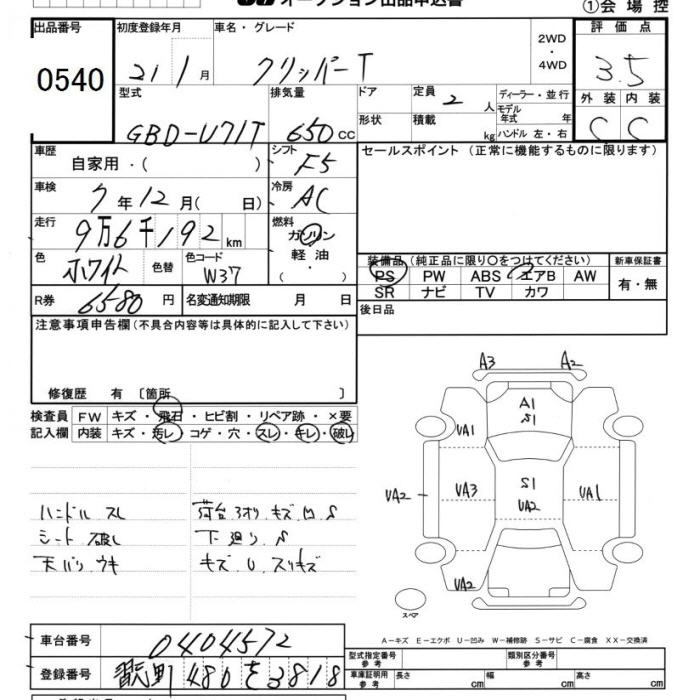 オークション出品申込書
①会場控
出品番号
0540
初度登録年月
21 1 月
車名・グレード
クリッパーT
2WD
・
4WD
評価点
3.5
外装 内装
C C
型式
GBD-U71T
排気量
650 cc
ドア
形状
定員 2 人
積載 kg
ディーラー・並行
モデル年式 年
ハンドル 左・右
車歴
自家用・( )
シフト
F5
セールスポイント (正常に機能するものに限ります)
車検
7年12月( 日)
冷房
AC
走行
9万6千192km
燃料
ガソリン
軽油
( ・ )
色
ホワイト
色替
色コード
W37
装備品 (純正品に限り○をつけてください)
PS PW ABS エアB AW
SR ナビ TV カワ
新車保証書
有・無
R券
6580円
名変通知期限 月 日
後日品
注意事項申告欄 (不具合内容等は具体的に記入して下さい)
修復歴 有 〔箇所 〕
検査員記入欄
FW キズ・飛石・ヒビ割・リペア跡・×要
内装 キズ・汚レ・コゲ・穴・スレ・キレ・破レ
ハンドル スレ
シート 破レ
天バリ ウキ
荷台 3オリ キズ 凹 S
下廻り S
キズ U スリキズ
A3 A2
A1
S1
UA1
UA2 UA3
S1
UA2
UA1
UA2
スペア
A-キズ E-エクボ U-凹み W-補修跡 S-サビ C-腐食 XX-交換済
車台番号
0404572
登録番号
480 を 3818
型式指定番号
参考
類別区分番号
参考
車庫証明用
参考
長さ cm
幅 cm
高さ cm